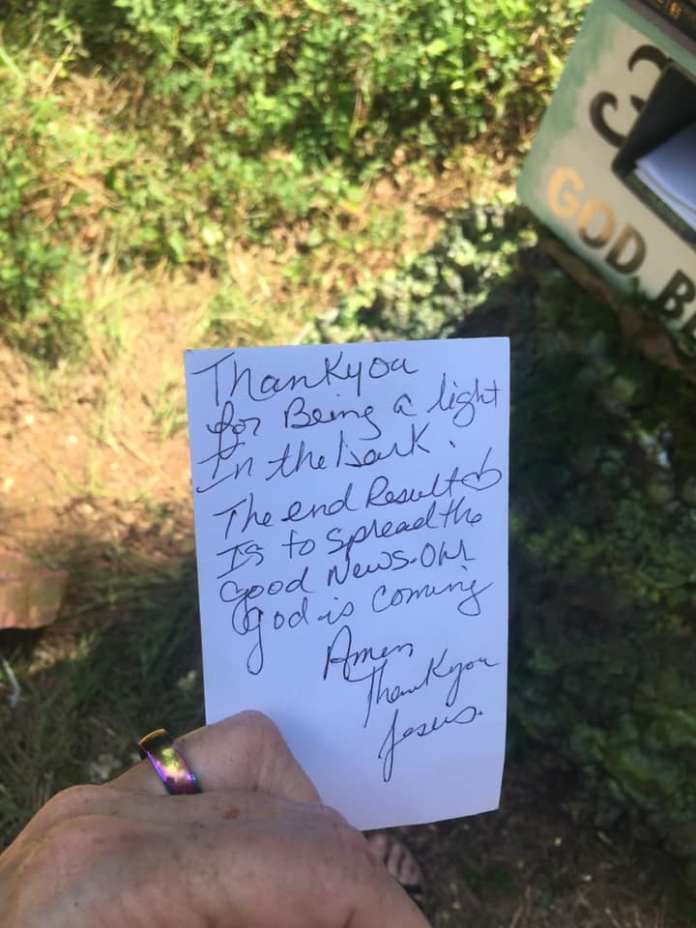 3
GOD B
Thankyou
for Being a light
In the dark.
The end Result
Is to spread the
Good News. Our
God is coming
Amen
Thankyou
Jesus.